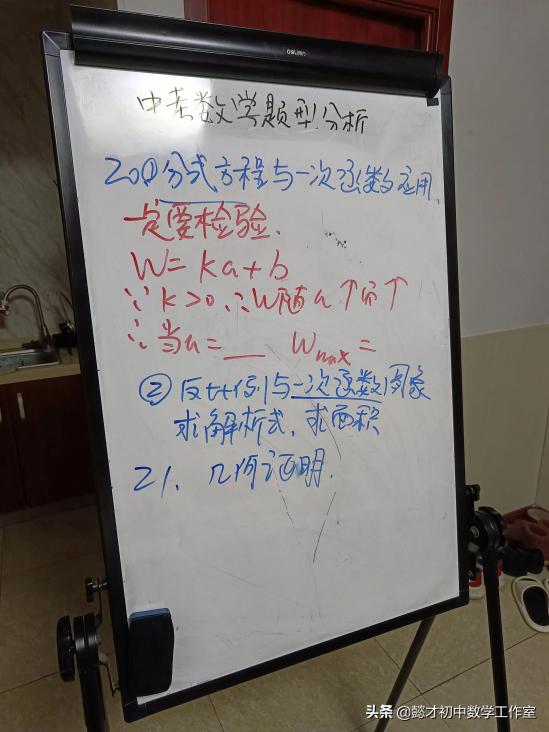 deli得力
中考数学题型分析
20①分式方程与一次函数的应用
一定要检验.
W=ka+b
∵k>0,∴W随a↑而↑
∴当a=__ Wmax=
②反比例与一次函数图象
求解析式、求面积
21. 几何证明.
头条 @懿才初中数学工作室